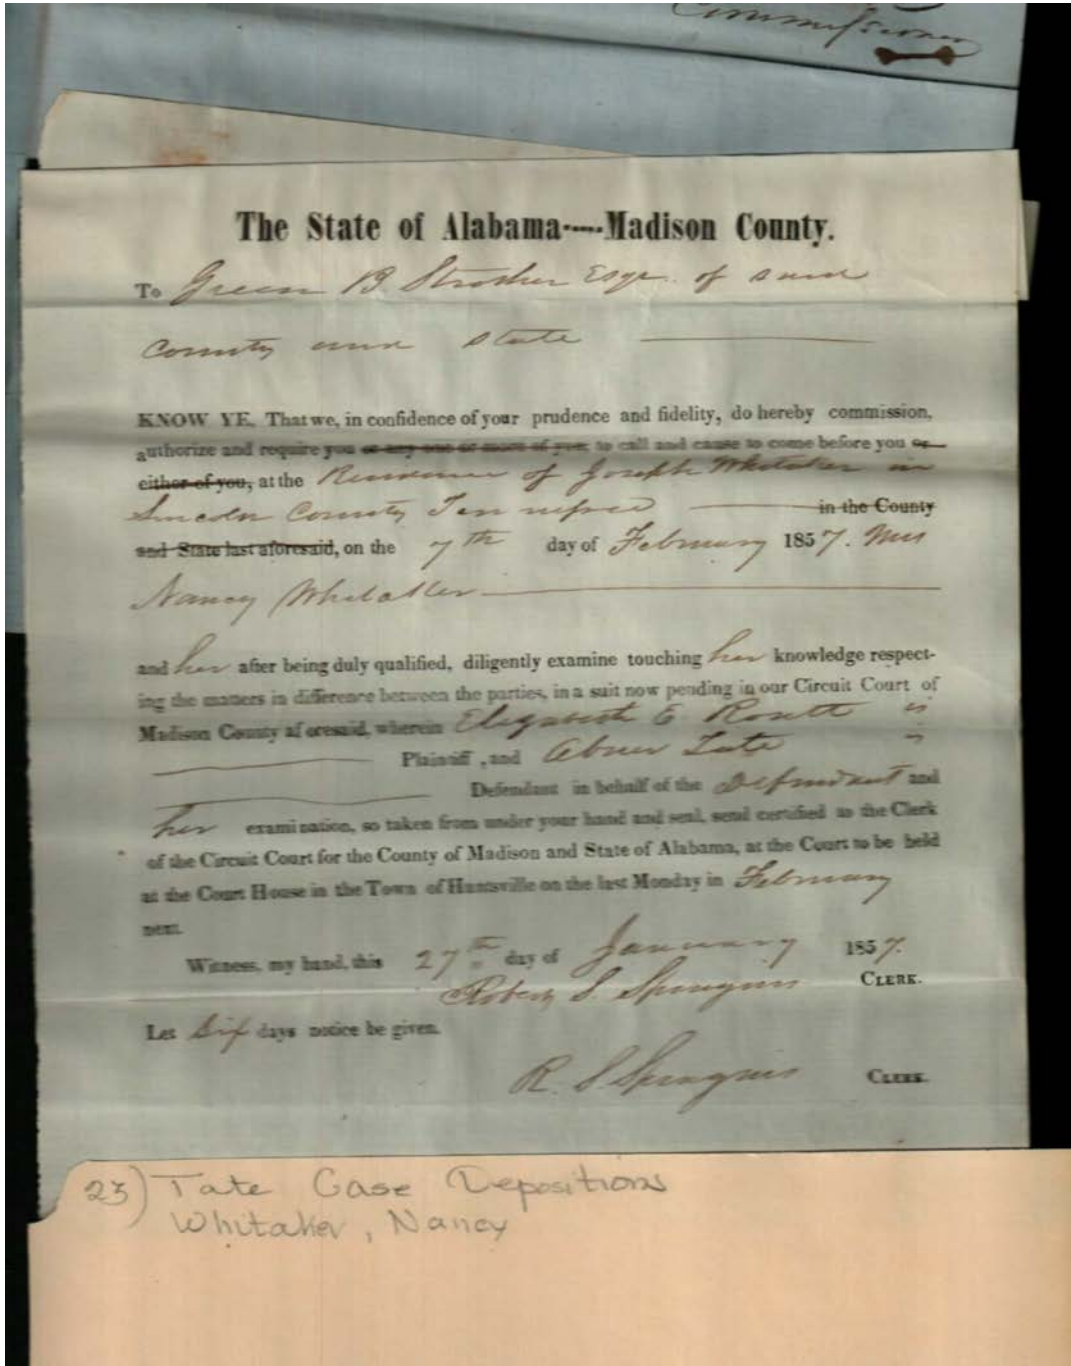 Commissioner
The State of Alabama----Madison County.
To Green B Strother Esqr. of said
County and State
KNOW YE, That we, in confidence of your prudence and fidelity, do hereby commission,
authorize and require you or any one or more of you; to call and cause to come before you or
either of you, at the Residence of Joseph Whitaker in
Lincoln County Tennessee in the County
and State last aforesaid, on the 7th day of February 1857. Mrs
Nancy Whitaker
and her after being duly qualified, diligently examine touching her knowledge respect-
ing the matters in difference between the parties, in a suit now pending in our Circuit Court of
Madison County aforesaid, wherein Elizabeth E. Routt is
Plaintiff, and Abner Tate is
Defendant in behalf of the Defendant and
her examination, so taken from under your hand and seal, send certified to the Clerk
of the Circuit Court for the County of Madison and State of Alabama, at the Court to be held
at the Court House in the Town of Huntsville on the last Monday in February
next.
Witness, my hand, this 27th day of January 1857.
Robert S. Spragins CLERK.
Let Six days notice be given.
R. S. Spragins CLERK.
23) Tate Case Depositions
Whitaker, Nancy